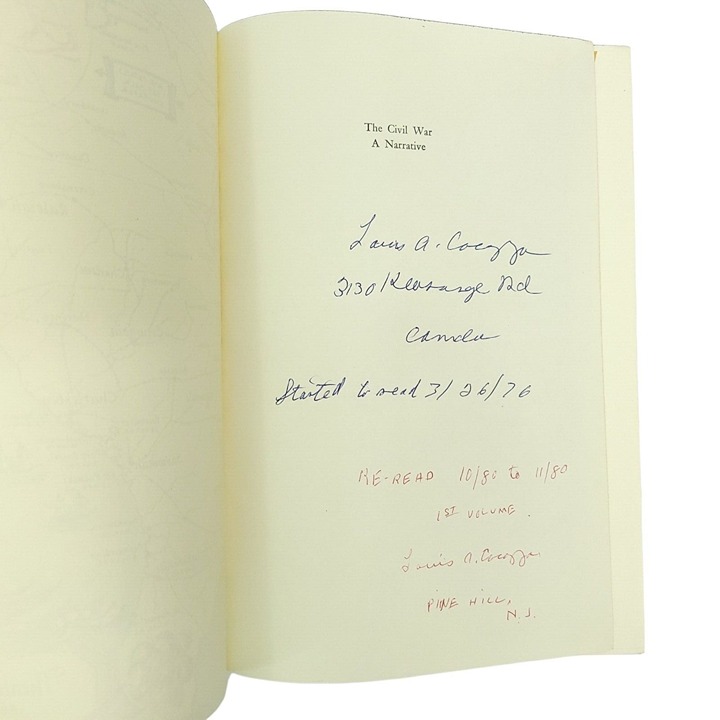 The Civil War
A Narrative
Louis A. Cocozza
3130 Kearsarge Rd
Camden
Started to read 3/26/76
RE-READ 10/80 to 11/80
1ST VOLUME.
Louis A. Cocozza
PINE HILL,
N.J.